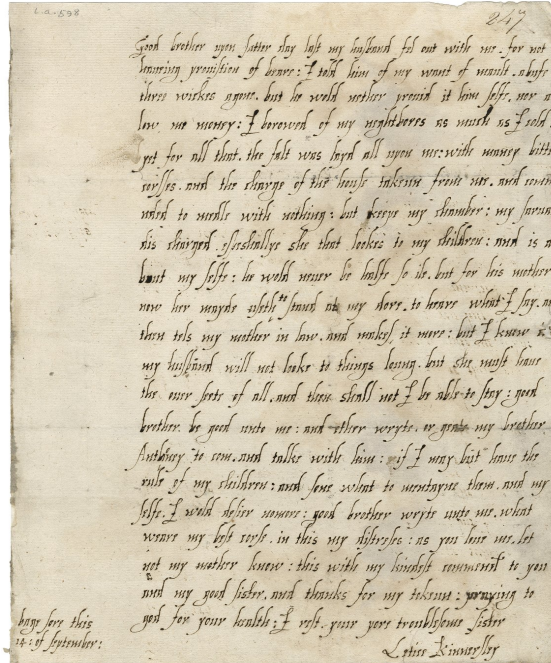 L.a.598
247
Good brother upon satter day last my husband fel out with me. for not
haueing prouistion of beare: I told him of my want of mault. abuft
three wickes agone. but he wold nether prouid it him selfe. nor a
low me money: I borowed of my neghtbores as much as I cold
yet for all that. the falt was layd all upon me: with maney bitt
corsses. and the charge of the house takenn from me. and com
anded to medle with nothing: but keepe my chamber: my sarua
dis charged. espeshallye she that lookes to my children: and is a
bout my selfe: he wold neuer be halfe so ile. but for his mother
now her mayde useth to stand at my dore. to heare what I say. a
then tels my mother in law. and makes it more: but I know
my husband will not looke to things loung. but she must haue
the ouer seete of all. and then shall not I be able to stay: good
brother. be good unto me: and ether wryte. or gett my brother
Anthony to com. and talke with him: if I may but haue the
rule of my children: and some what to mentayne them. and my
selfe. I wold desier nomore: good brother wryte unto me. what
weare my best corse. in this my distreses: as you loue me. let
not my mother know: this with my kindest commend to you
and my good sister. and thanks for my tokenn: praying to
god for your health: I rest. your pore troublsome sister
Lettice Kinnersley
bage fore this
14: of september: